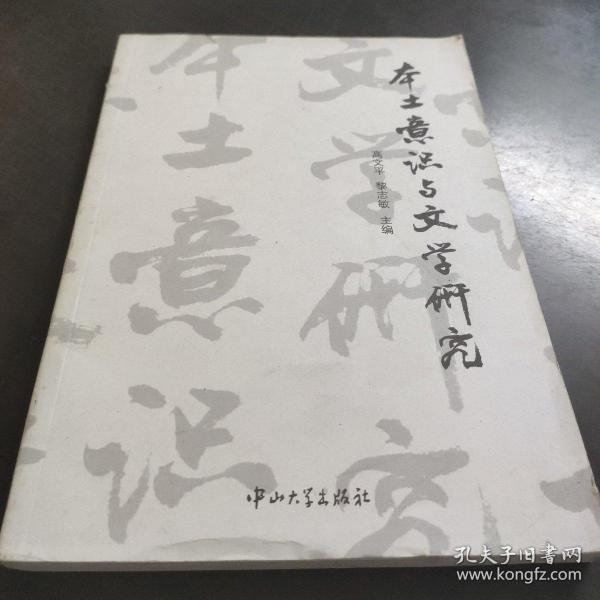 本土意识与文学研究
高文平 黎志敏 主编
本土意识
文学研究
中山大学出版社
孔夫子旧书网
www.kongfz.com